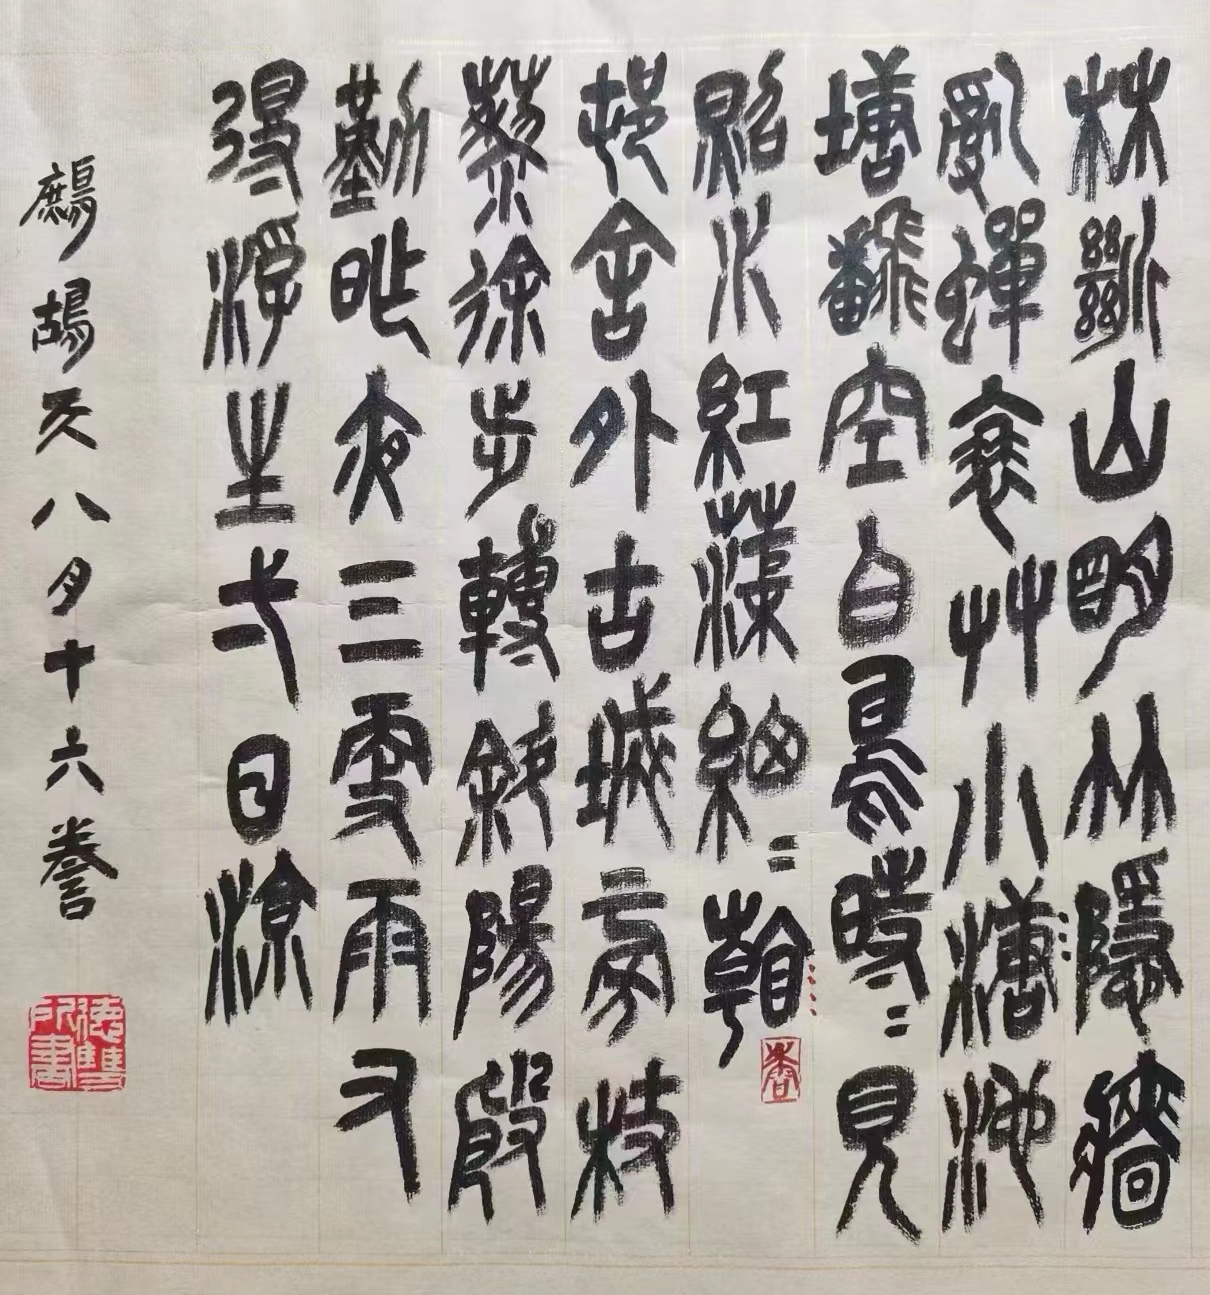 林斷山明竹隱牆
亂蟬衰艸小溏池
塘翻空白鳥時〻見
照水紅蕖細〻香
邨舍外古城旁枝
藜徐步轉斜陽殷
勤昨夜三雪雨又
得浮生弌日涼
鷓鴣天八月十六誊